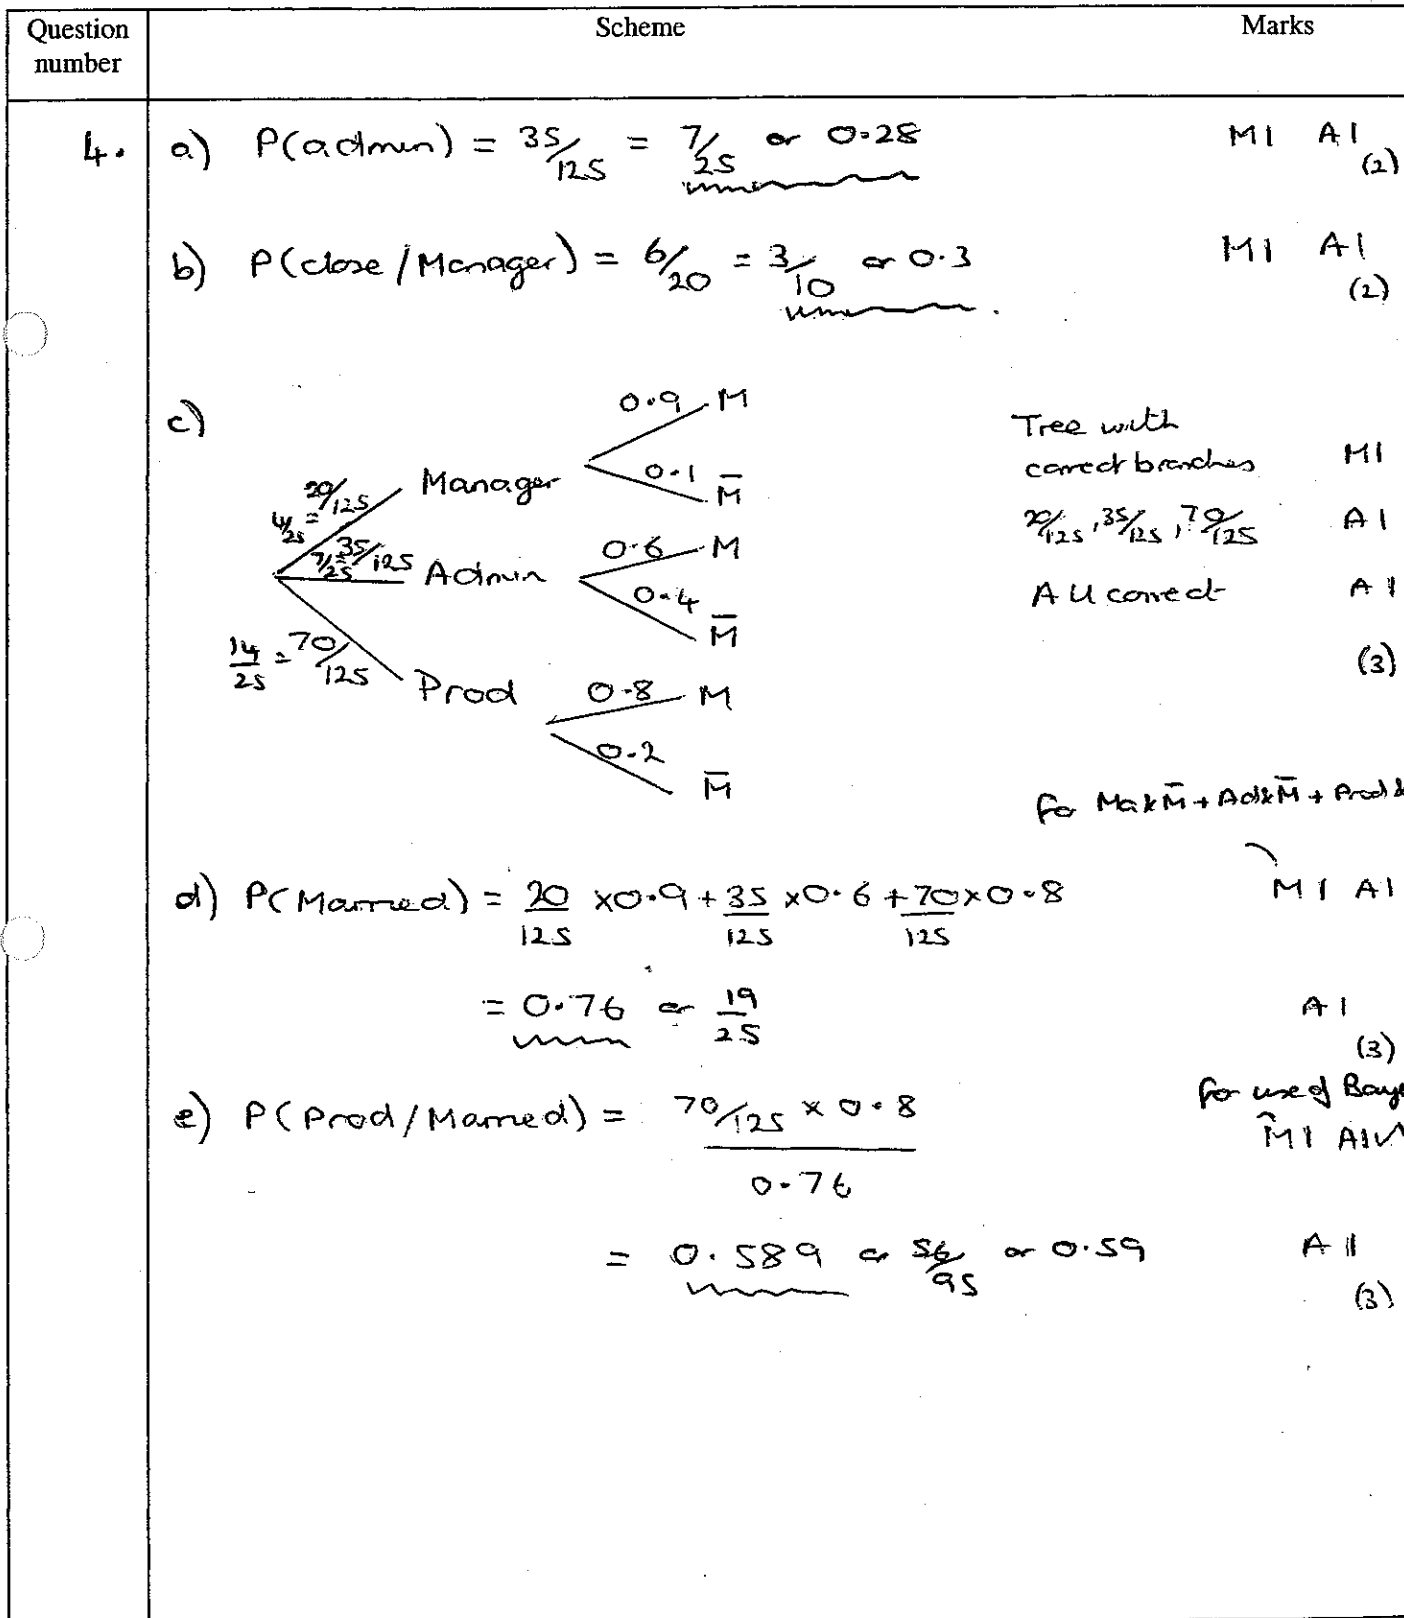 Question number
Scheme
Marks
4.
a) P(admin) = 35/125 = 7/25 or 0.28
M1 A1
(2)
b) P(close/Manager) = 6/20 = 3/10 or 0.3
M1 A1
(2)
c)
0.9 M
Manager
0.1 M̄
4/25 = 20/125
7/25 = 35/125
Admin
0.6 M
0.4 M̄
14/25 = 70/125
Prod
0.8 M
0.2 M̄
Tree with
correct branches M1
20/125, 35/125, 70/125 A1
All correct A1
(3)
for Ma&M̄ + Ad&M̄ + Prod&
d) P(Married) = 20/125 × 0.9 + 35/125 × 0.6 + 70/125 × 0.8
M1 A1
= 0.76 or 19/25
A1
(3)
e) P(Prod/Married) = 70/125 × 0.8 / 0.76
for use of Baye
M1 A1√
= 0.589 or 56/95 or 0.59
A1
(3)